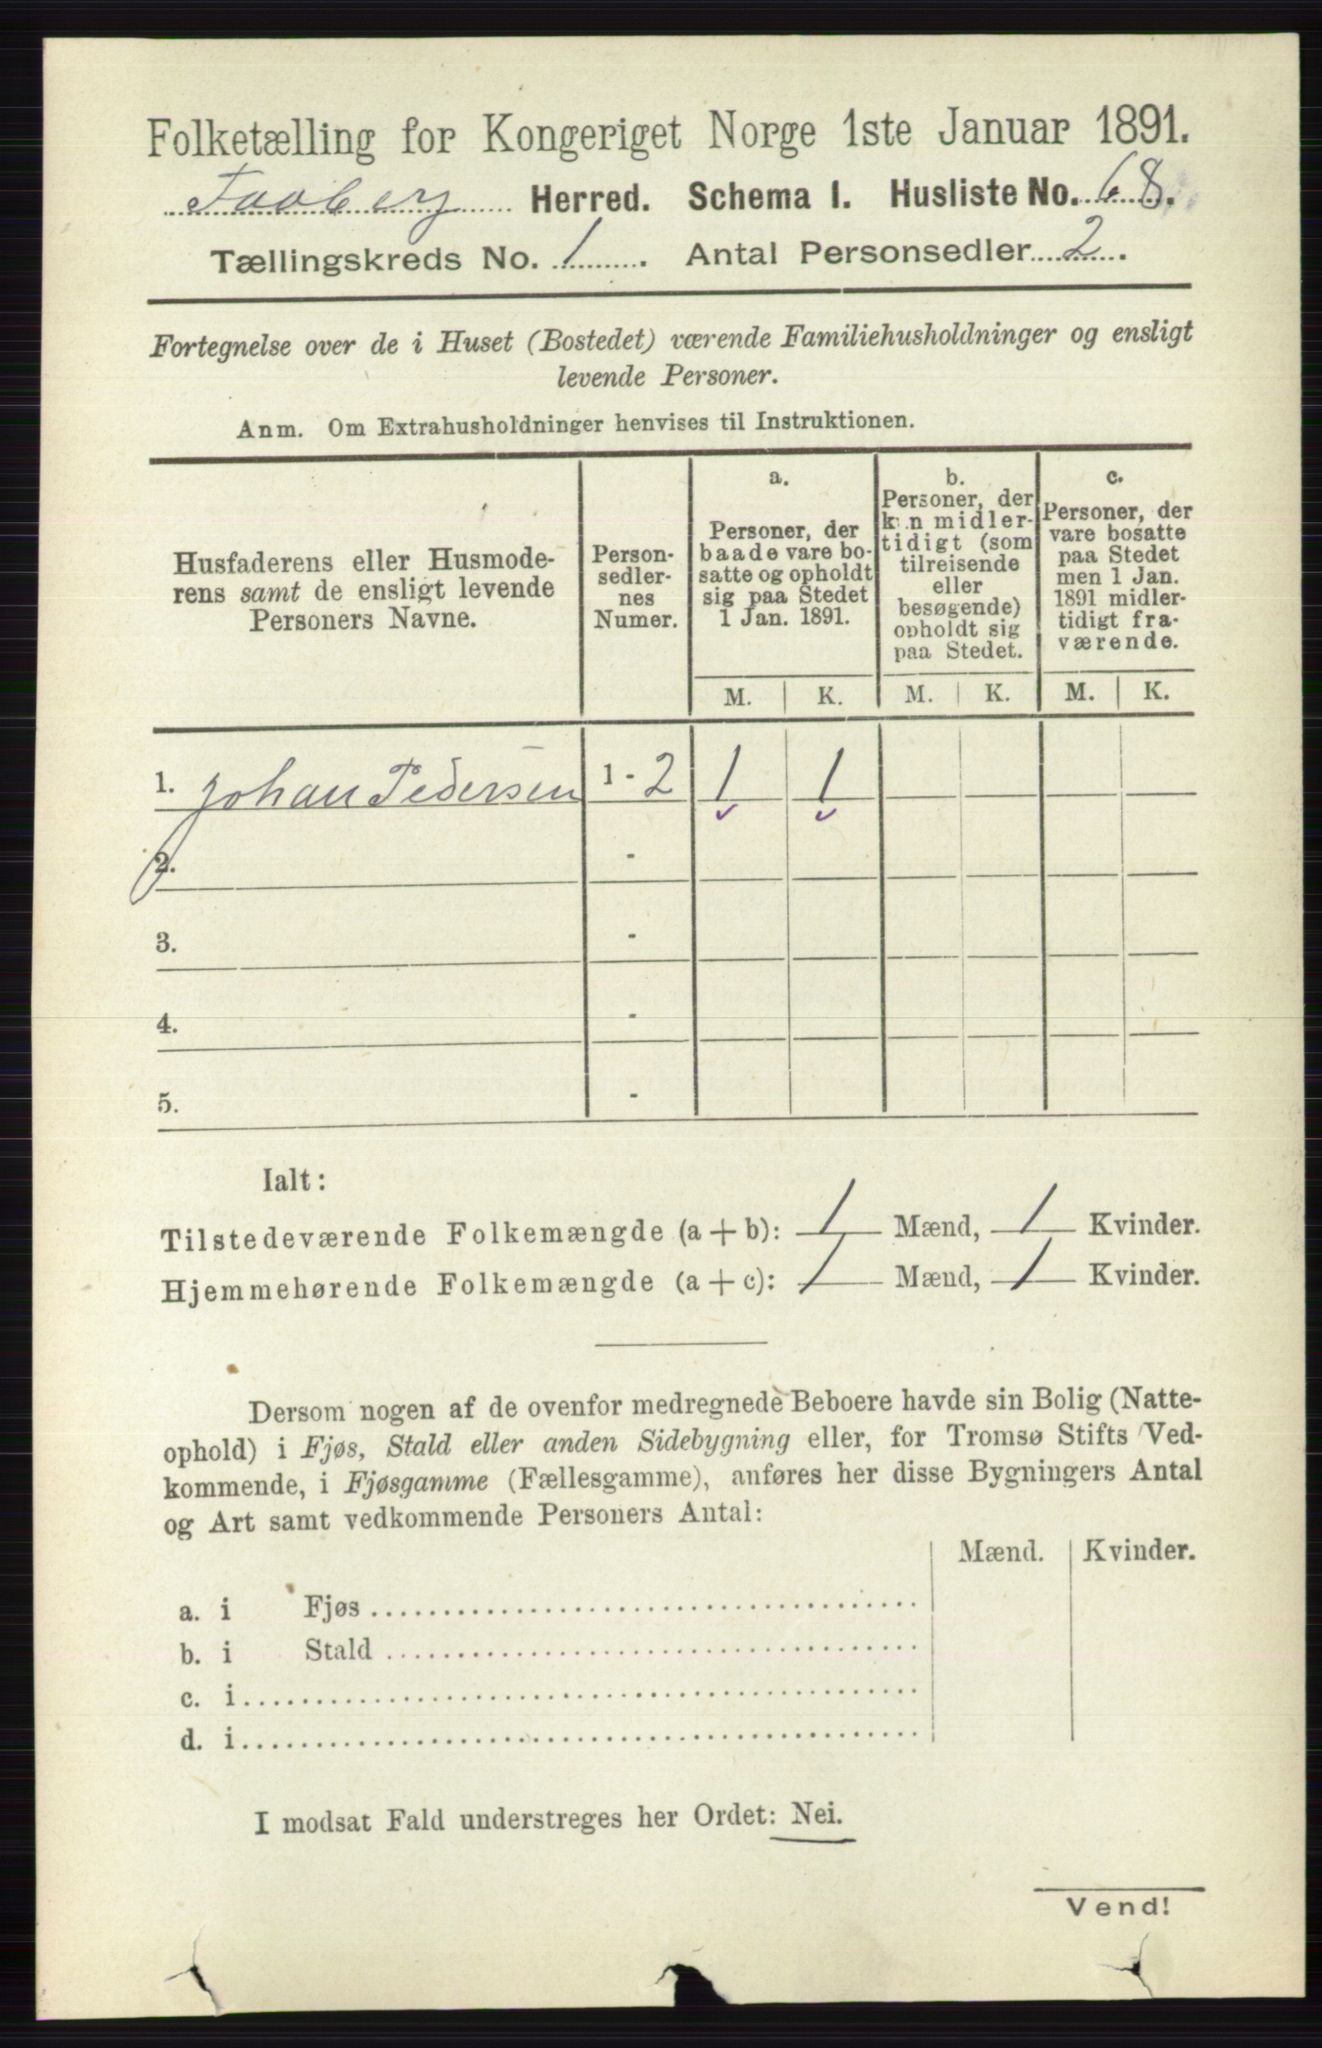 Folketælling for Kongeriget Norge 1ste Januar 1891.
Faaberg Herred. Schema I. Husliste No. 68.
Tællingskreds No. 1. Antal Personsedler 2.
Fortegnelse over de i Huset (Bostedet) værende Familiehusholdninger og ensligt
levende Personer.
Anm. Om Extrahusholdninger henvises til Instruktionen.
Husfaderens eller Husmode-
rens samt de ensligt levende
Personers Navne.
Person-
sedler-
nes
Numer.
a.
Personer, der
baade vare bo-
satte og opholdt
sig paa Stedet
1 Jan. 1891.
b.
Personer, der
kun midler-
tidigt (som
tilreisende
eller
besøgende)
opholdt sig
paa Stedet.
c.
Personer, der
vare bosatte
paa Stedet
men 1 Jan.
1891 midler-
tidigt fra-
værende.
M. K. M. K. M. K.
1. Johan Pedersen 1 - 2 1 1
2. -
3. -
4. -
5. -
Ialt:
Tilstedeværende Folkemængde (a + b): 1 Mænd, 1 Kvinder.
Hjemmehørende Folkemængde (a + c): 1 Mænd, 1 Kvinder.
Dersom nogen af de ovenfor medregnede Beboere havde sin Bolig (Natte-
ophold) i Fjøs, Stald eller anden Sidebygning eller, for Tromsø Stifts Ved-
kommende, i Fjøsgamme (Fællesgamme), anføres her disse Bygningers Antal
og Art samt vedkommende Personers Antal:
Mænd. Kvinder.
a. i Fjøs
b. i Stald
c. i
d. i
I modsat Fald understreges her Ordet: Nei.
Vend!